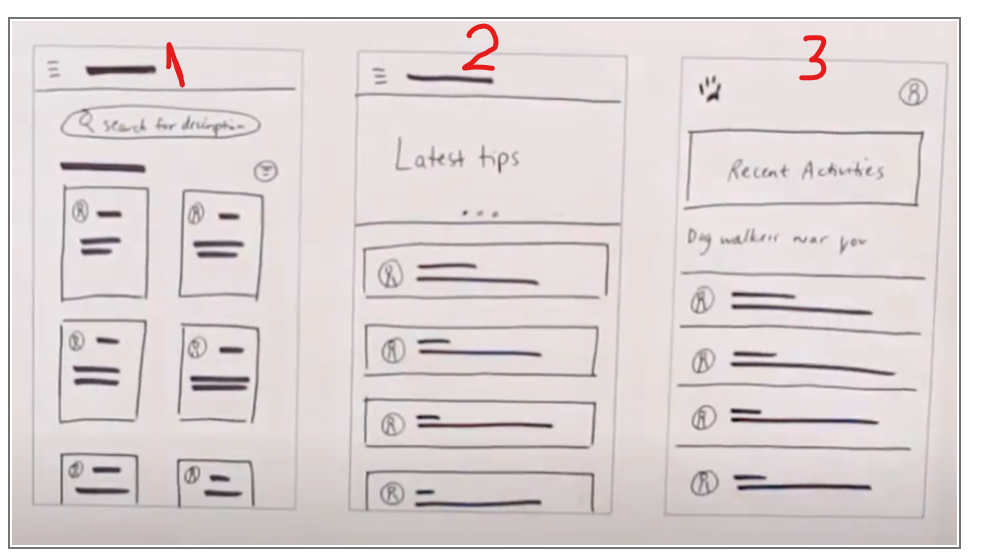 1
2
3
search for description
Latest tips
...
Recent Activities
Dog walkers near you